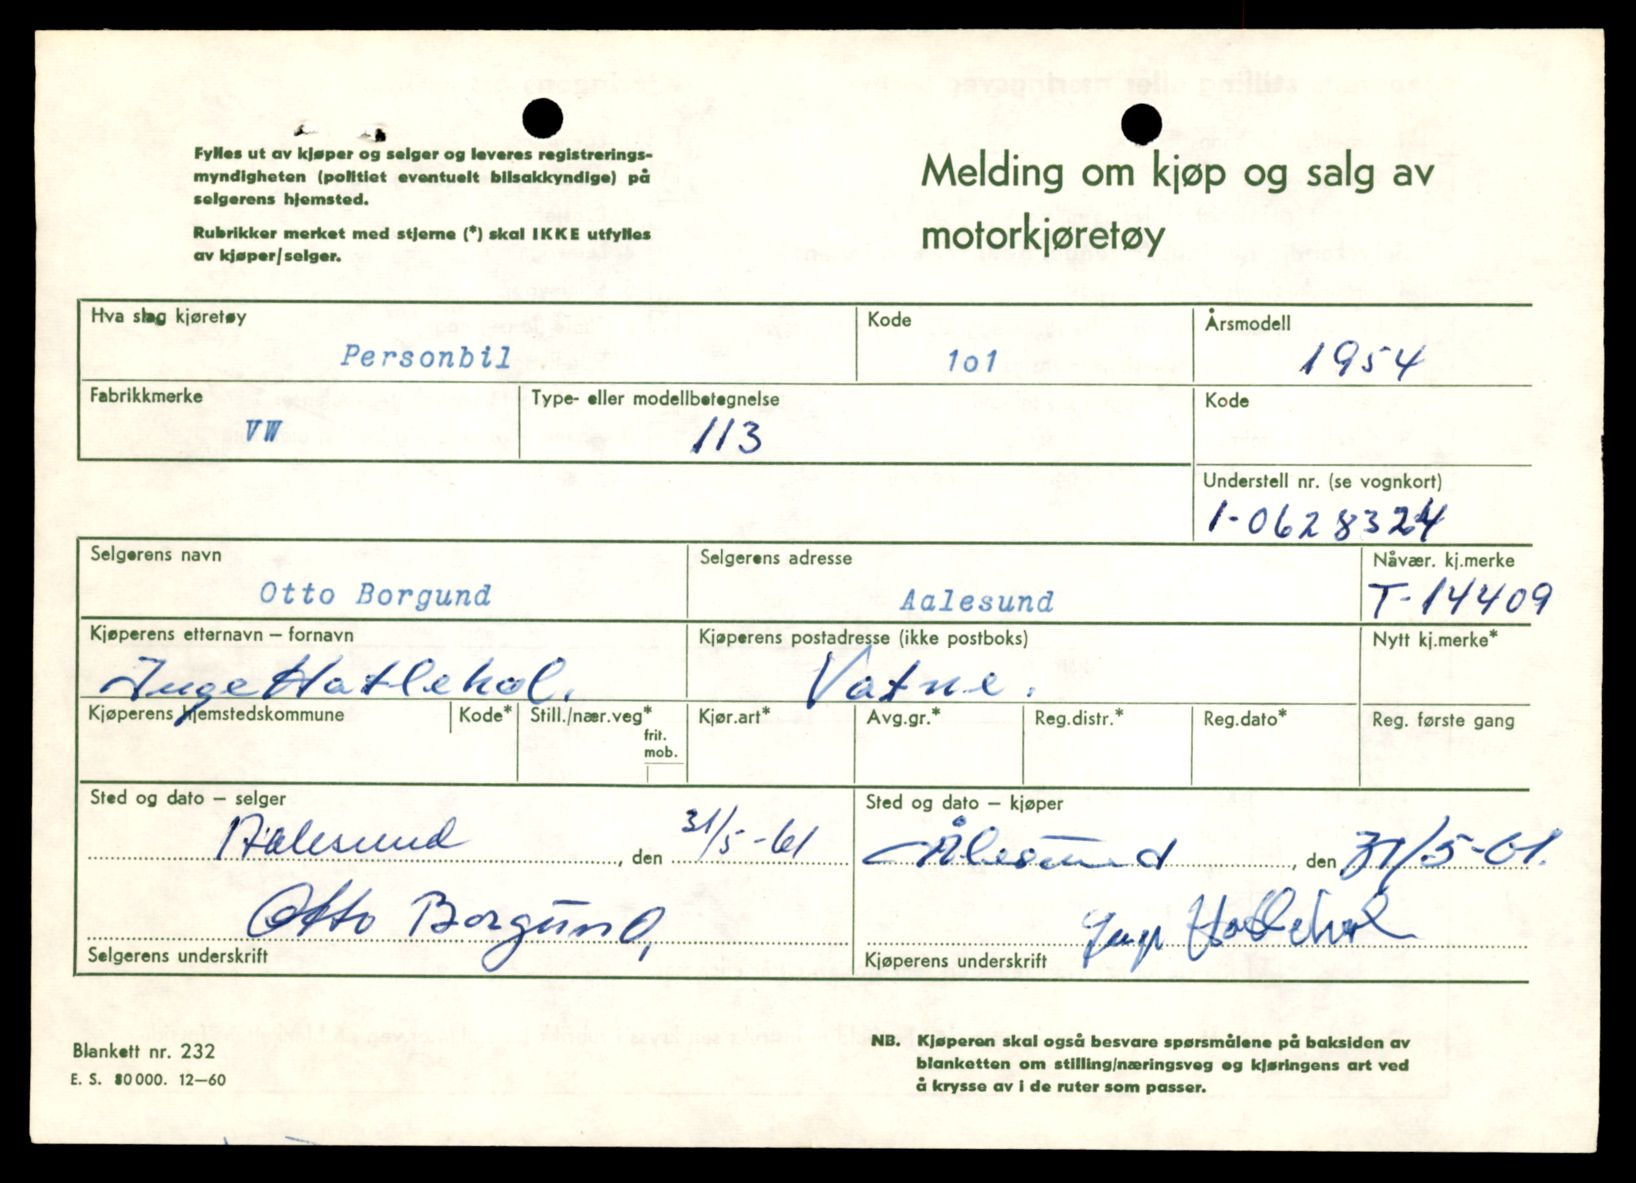 Fylles ut av kjøper og selger og leveres registrerings-
myndigheten (politiet eventuelt bilsakkyndige) på
selgerens hjemsted.
Rubrikker merket med stjerne (*) skal IKKE utfylles
av kjøper/selger.
Melding om kjøp og salg av
motorkjøretøy
Hva slag kjøretøy
Kode
Årsmodell
Personbil
1o1
1954
Fabrikkmerke
Type- eller modellbetegnelse
Kode
VW
113
Understell nr. (se vognkort)
1-0628324
Selgerens navn
Selgerens adresse
Nåvær. kj.merke
Otto Borgund
Aalesund
T-14409
Kjøperens etternavn – fornavn
Kjøperens postadresse (ikke postboks)
Nytt kj.merke*
Inge Hatlehol.
Vatne.
Kjøperens hjemstedskommune
Kode*
Still./nær.veg*
frit.
mob.
Kjør.art*
Avg.gr.*
Reg.distr.*
Reg.dato*
Reg. første gang
Sted og dato – selger
Sted og dato – kjøper
Aalesund, den 31/5-61
Ålesund, den 31/5-61.
Otto Borgund,
Inge Hatlehol
Selgerens underskrift
Kjøperens underskrift
Blankett nr. 232
E. S. 80000. 12–60
NB. Kjøperen skal også besvare spørsmålene på baksiden av
blanketten om stilling/næringsveg og kjøringens art ved
å krysse av i de ruter som passer.